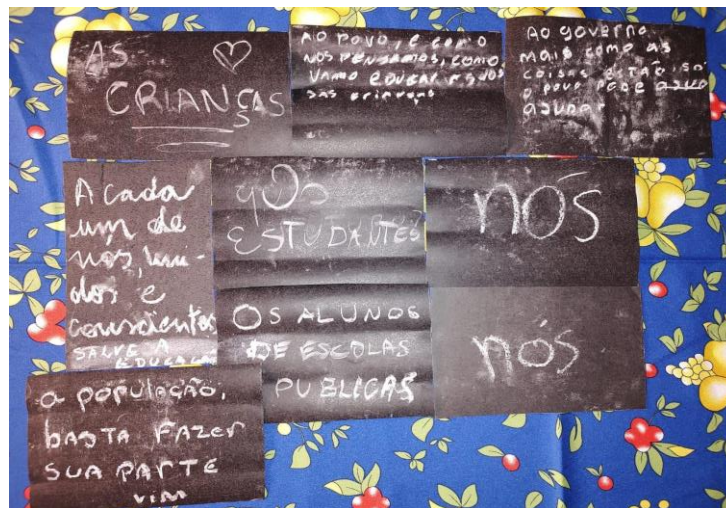 AS
CRIANÇAS
AO POVO, E COMO
NOS PENSAMOS, COMO
VAMO EDUCAR
SAS
Ao governo
mais como as
coisas estão, só
o povo pode
ajudar
A cada
um de
nós, uni-
dos e
conscientes
SALVE A
EDUCAÇÃO
ESTUDANTES
NÓS
OS ALUNOS
DE ESCOLAS
PUBLICAS
nós
a população,
basta fazer
SUA PARTE